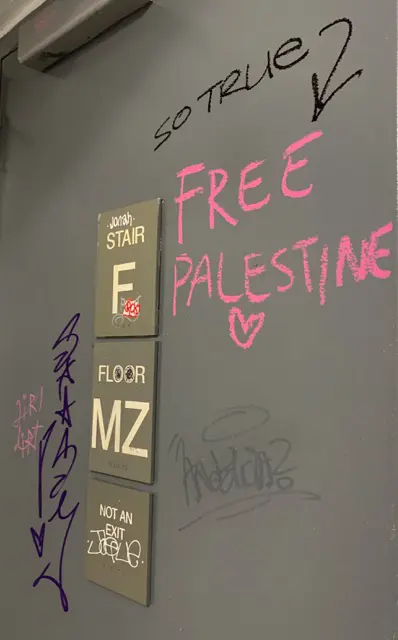 SO TRUE
FREE
PALESTINE
Jonah
STAIR
F
FLOOR
MZ
NOT AN
EXIT
girl
dirt